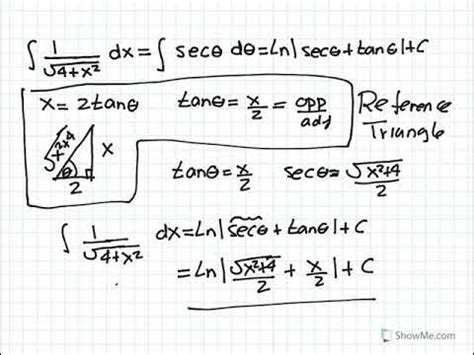 ∫ 1/√4+x² dx = ∫ secθ dθ = Ln|secθ + tanθ| + C
x = 2tanθ tanθ = x/2 = opp/adj Reference
Triangle
√x²+4 x
θ
2
tanθ = x/2 secθ = √x²+4/2
∫ 1/√4+x² dx = Ln|secθ + tanθ| + C
= Ln|√x²+4/2 + x/2| + C
ShowMe.com